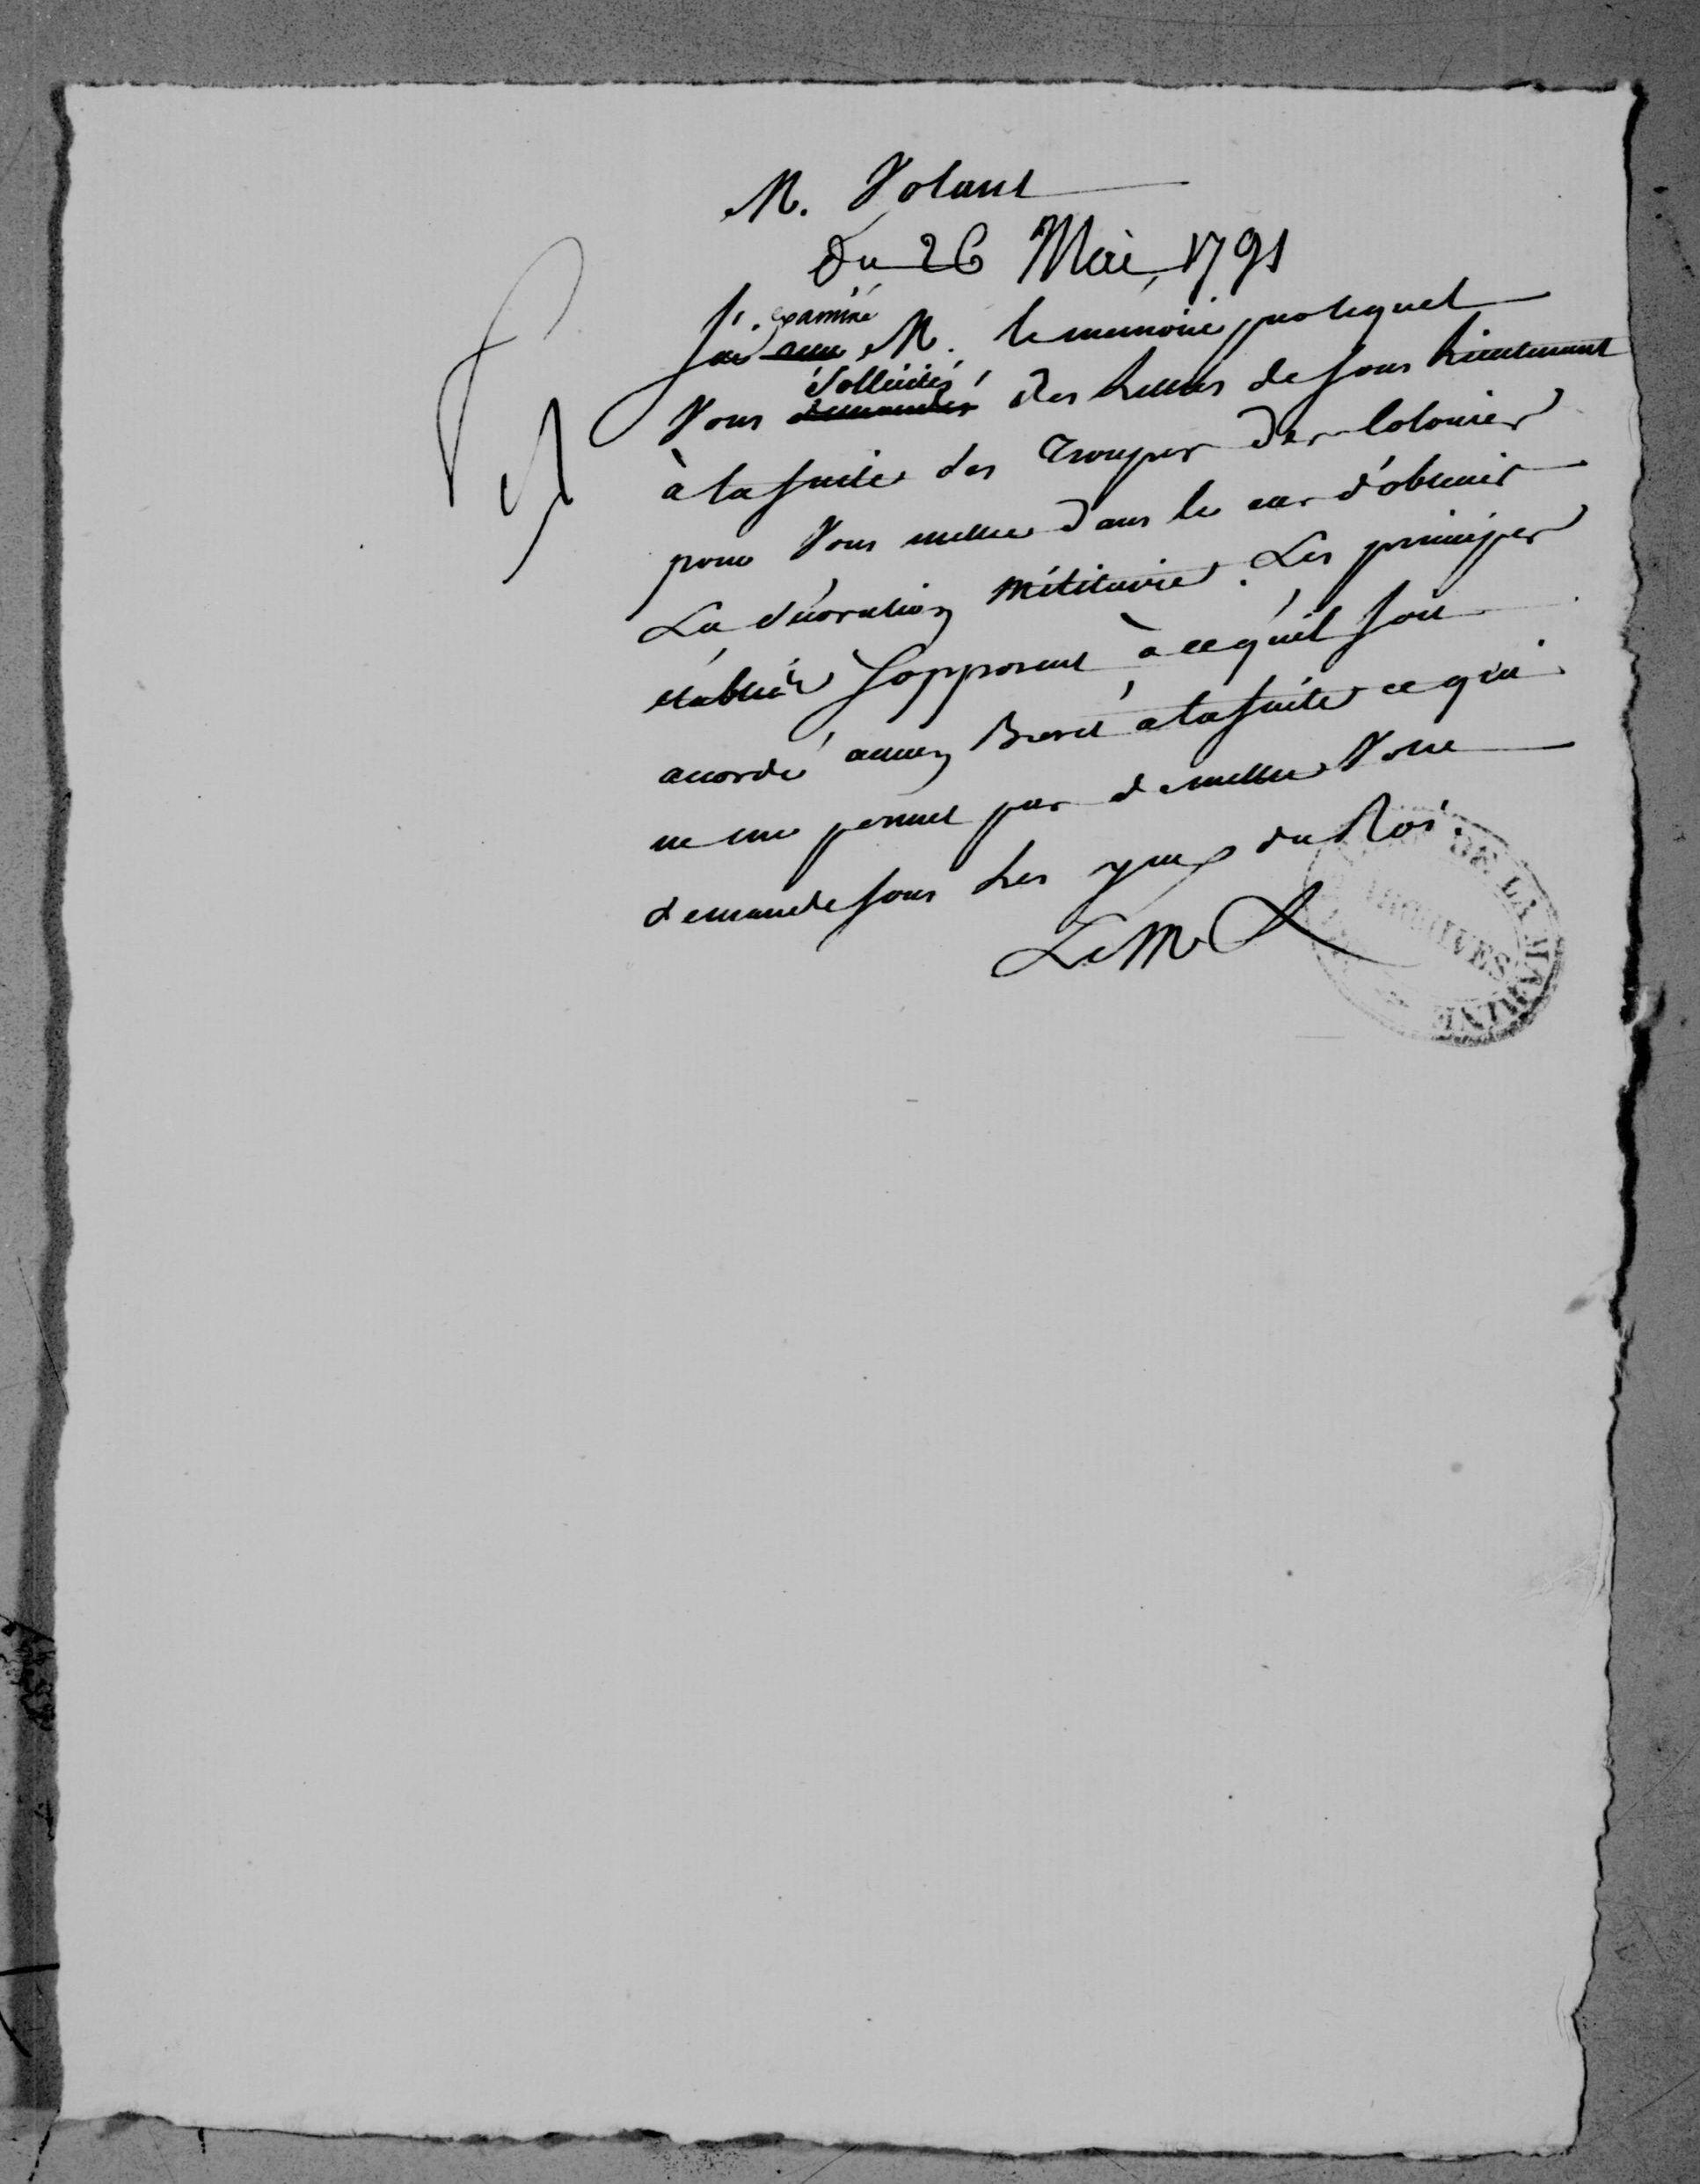 M. Volant
Du 26 Mai 1791
examiné
J'ai reçu M. le memoire par lequel
Sollicités
Vous demandés des Lettres de sous Lieutenant
à la suite des Troupes des Colonies
pour Vous mettre dans le cas d'obtenir
La décoration Militaire. Les principes
établis s'opposent à ce qu'il soit
accordé aucun Brevet à la suite ce qui
ne me permet pas de mettre Votre
demande sous les yeux du Roi.
DE LA MARINE
ARCHIVES